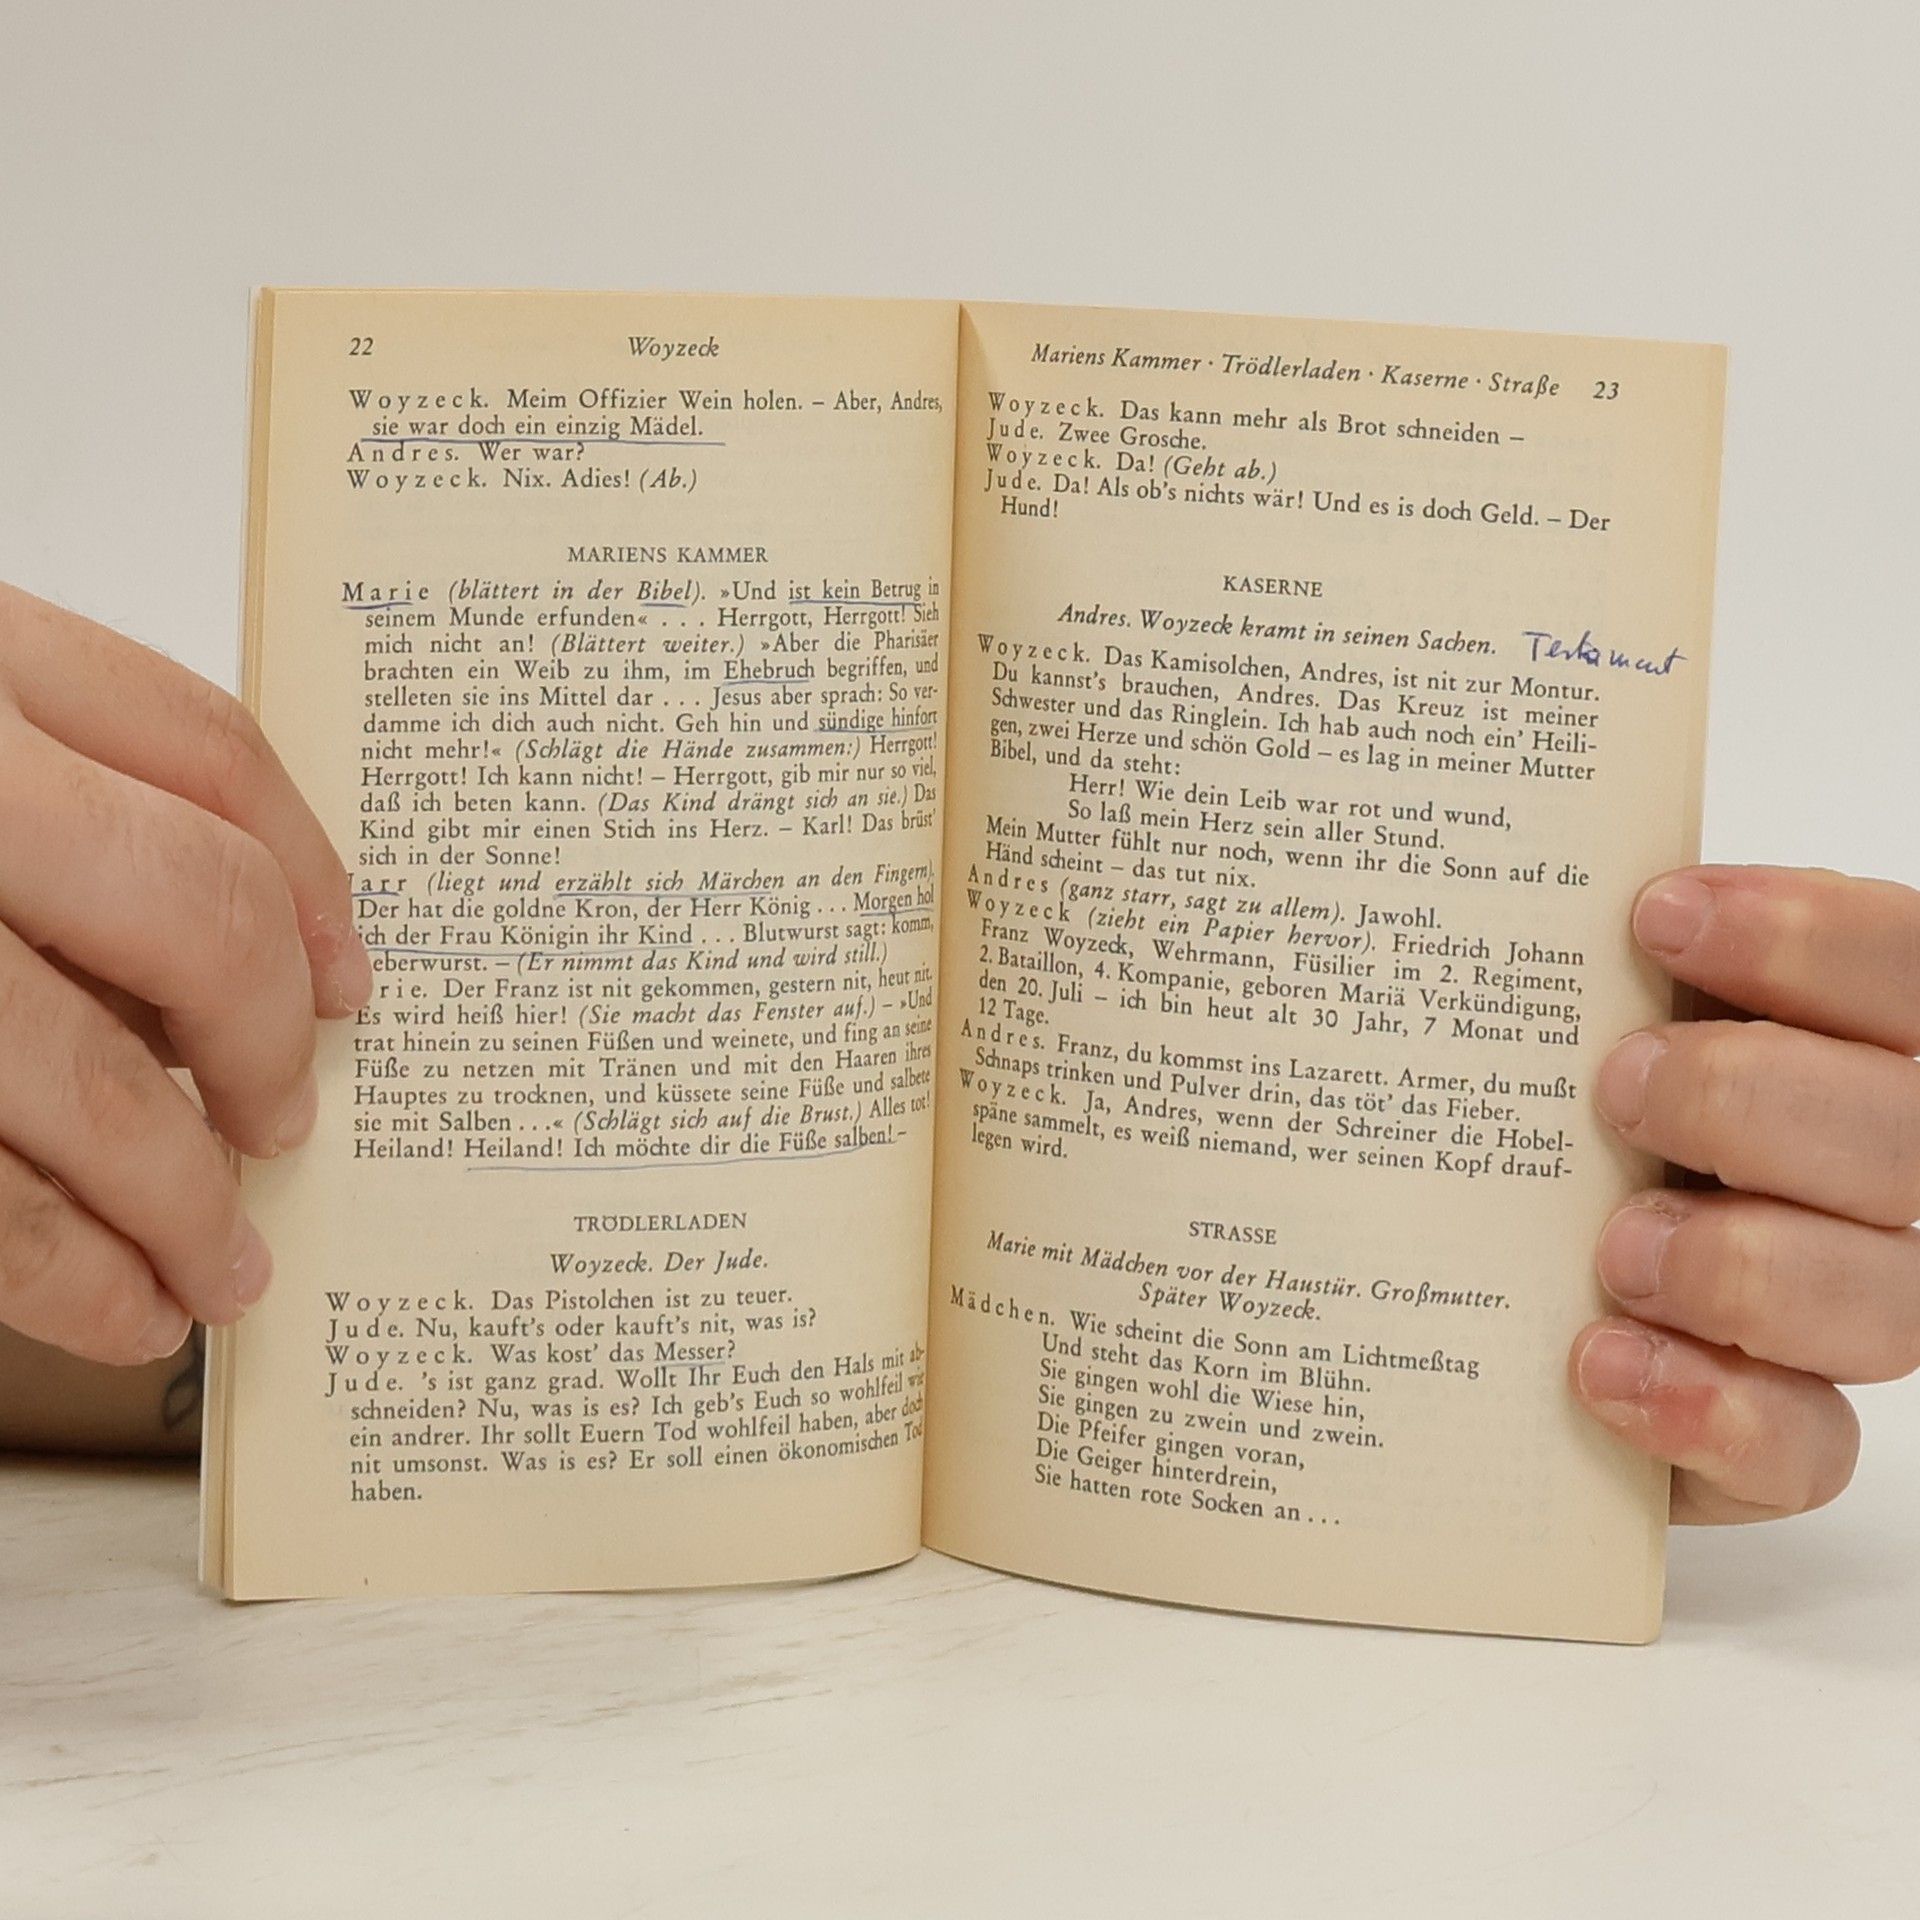 22 Woyzeck
Woyzeck. Meim Offizier Wein holen. – Aber, Andres,
sie war doch ein einzig Mädel.
Andres. Wer war?
Woyzeck. Nix. Adies! (Ab.)
MARIENS KAMMER
Marie (blättert in der Bibel). »Und ist kein Betrug in
seinem Munde erfunden« . . . Herrgott, Herrgott! Sieh
mich nicht an! (Blättert weiter.) »Aber die Pharisäer
brachten ein Weib zu ihm, im Ehebruch begriffen, und
stelleten sie ins Mittel dar . . . Jesus aber sprach: So ver-
damme ich dich auch nicht. Geh hin und sündige hinfort
nicht mehr!« (Schlägt die Hände zusammen:) Herrgott!
Herrgott! Ich kann nicht! – Herrgott, gib mir nur so viel,
daß ich beten kann. (Das Kind drängt sich an sie.) Das
Kind gibt mir einen Stich ins Herz. – Karl! Das brüst'
sich in der Sonne!
arr (liegt und erzählt sich Märchen an den Fingern).
Der hat die goldne Kron, der Herr König . . . Morgen hol
ich der Frau Königin ihr Kind . . . Blutwurst sagt: komm,
eberwurst. – (Er nimmt das Kind und wird still.)
rie. Der Franz ist nit gekommen, gestern nit, heut nit.
Es wird heiß hier! (Sie macht das Fenster auf.) – »Und
trat hinein zu seinen Füßen und weinete, und fing an seine
Füße zu netzen mit Tränen und mit den Haaren ihres
Hauptes zu trocknen, und küssete seine Füße und salbete
sie mit Salben . . .« (Schlägt sich auf die Brust.) Alles tot!
Heiland! Heiland! Ich möchte dir die Füße salben! –
TRÖDLERLADEN
Woyzeck. Der Jude.
Woyzeck. Das Pistolchen ist zu teuer.
Jude. Nu, kauft's oder kauft's nit, was is?
Woyzeck. Was kost' das Messer?
Jude. 's ist ganz grad. Wollt Ihr Euch den Hals mit ab-
schneiden? Nu, was is es? Ich geb's Euch so wohlfeil wie
ein andrer. Ihr sollt Euern Tod wohlfeil haben, aber doch
nit umsonst. Was is es? Er soll einen ökonomischen Tod
haben.
Mariens Kammer · Trödlerladen · Kaserne · Straße 23
Woyzeck. Das kann mehr als Brot schneiden –
Jude. Zwee Grosche.
Woyzeck. Da! (Geht ab.)
Jude. Da! Als ob's nichts wär! Und es is doch Geld. – Der
Hund!
KASERNE
Andres. Woyzeck kramt in seinen Sachen. Testament
Woyzeck. Das Kamisolchen, Andres, ist nit zur Montur.
Du kannst's brauchen, Andres. Das Kreuz ist meiner
Schwester und das Ringlein. Ich hab auch noch ein' Heili-
gen, zwei Herze und schön Gold – es lag in meiner Mutter
Bibel, und da steht:
Herr! Wie dein Leib war rot und wund,
So laß mein Herz sein aller Stund.
Mein Mutter fühlt nur noch, wenn ihr die Sonn auf die
Händ scheint – das tut nix.
Andres (ganz starr, sagt zu allem). Jawohl.
Woyzeck (zieht ein Papier hervor). Friedrich Johann
Franz Woyzeck, Wehrmann, Füsilier im 2. Regiment,
2. Bataillon, 4. Kompanie, geboren Mariä Verkündigung,
den 20. Juli – ich bin heut alt 30 Jahr, 7 Monat und
12 Tage.
Andres. Franz, du kommst ins Lazarett. Armer, du mußt
Schnaps trinken und Pulver drin, das töt' das Fieber.
Woyzeck. Ja, Andres, wenn der Schreiner die Hobel-
späne sammelt, es weiß niemand, wer seinen Kopf drauf-
legen wird.
STRASSE
Marie mit Mädchen vor der Haustür. Großmutter.
Später Woyzeck.
Mädchen. Wie scheint die Sonn am Lichtmeßtag
Und steht das Korn im Blühn.
Sie gingen wohl die Wiese hin,
Sie gingen zu zwein und zwein.
Die Pfeifer gingen voran,
Die Geiger hinterdrein,
Sie hatten rote Socken an . . .